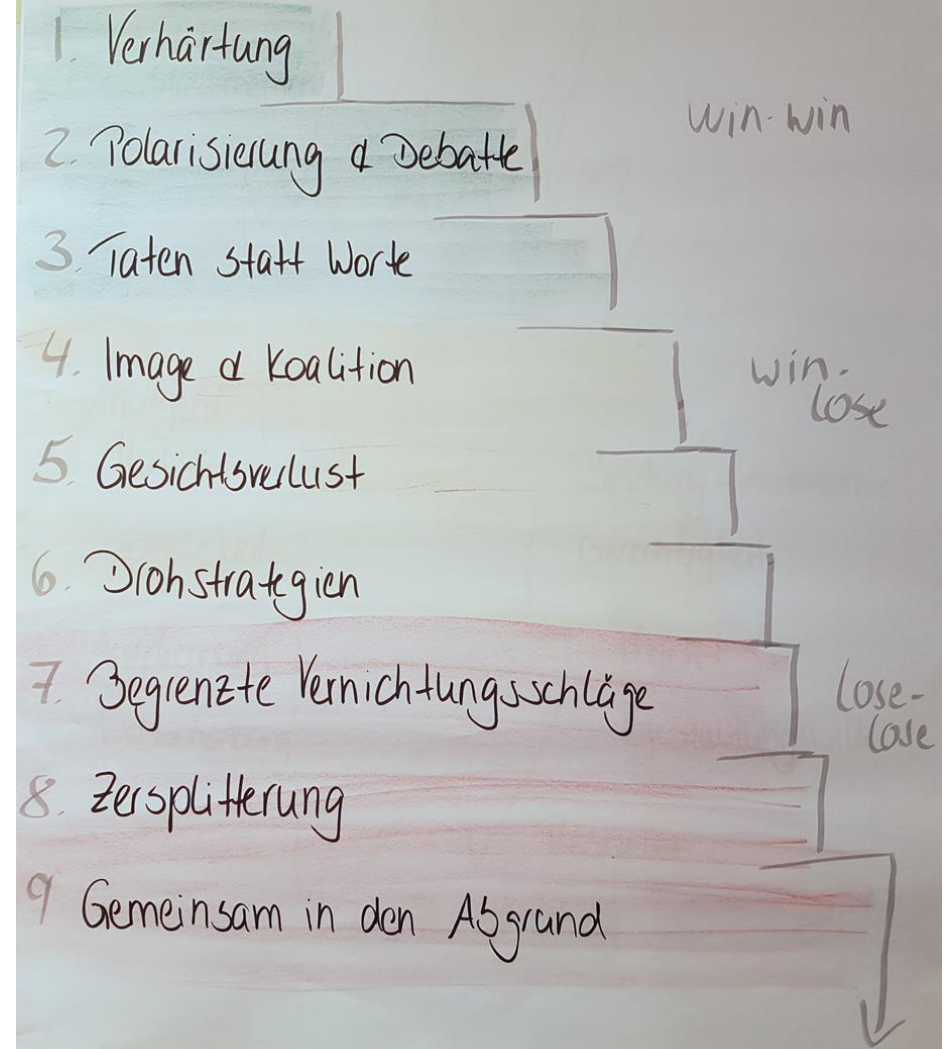 1. Verhärtung
win-win
2. Polarisierung & Debatte
3. Taten statt Worte
4. Image & Koalition
win-
lose
5. Gesichtsverlust
6. Drohstrategien
7. Begrenzte Vernichtungsschläge
lose-
lose
8. Zersplitterung
9 Gemeinsam in den Abgrund